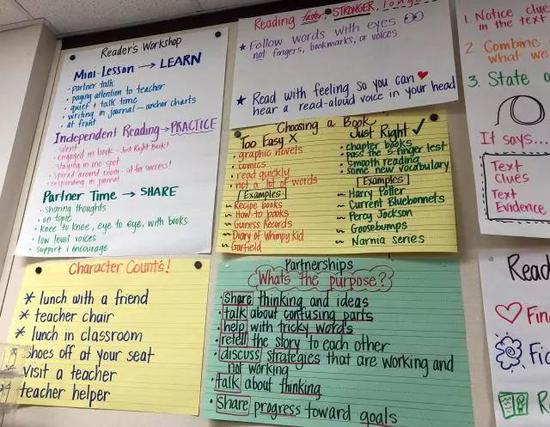 Reader's Workshop
Mini-Lesson → LEARN
• partner talk
• paying attention to teacher
• quiet + talk time
• writing in journal - anchor charts
• at front
Independent Reading → PRACTICE
• silent
• engaged in book - Just Right Book!
• staying in one spot
• spread around room - all for success!
• responding in journal
Partner Time → SHARE
• sharing thoughts
• on topic
• knee to knee, eye to eye, with books
• low level voices
• support & encourage
Reading faster, STRONGER, longer
★ Follow words with eyes
not fingers, bookmarks, or voices
★ Read with feeling so you can
hear a read-aloud voice in your head
Choosing a Book
Too Easy X
• graphic novels
• comics
• read quickly
• not a lot of words
Examples
~ Recipe books
~ How to books
~ Guness Records
~ Diary of Whimpy Kid
~ Garfield
Just Right ✓
• chapter books
• pass the 5-finger test
• Smooth reading
• some new vocabulary
Examples
~ Harry Potter
~ Current Bluebonnets
~ Percy Jackson
~ Goosebumps
~ Narnia series
Character Counts!
* lunch with a friend
* teacher chair
* lunch in classroom
* shoes off at your seat
* visit a teacher
* teacher helper
Partnerships
What's the purpose?
• share thinking and ideas
• talk about confusing parts
• help with tricky words
• retell the story to each other
• discuss strategies that are working and
not working
• talk about thinking
• Share progress toward goals
1. Notice clue
in the text
2. Combine
what we
3. State a
It says...
Text
Clues
Text
Evidence
Read
Fin
Fic
R